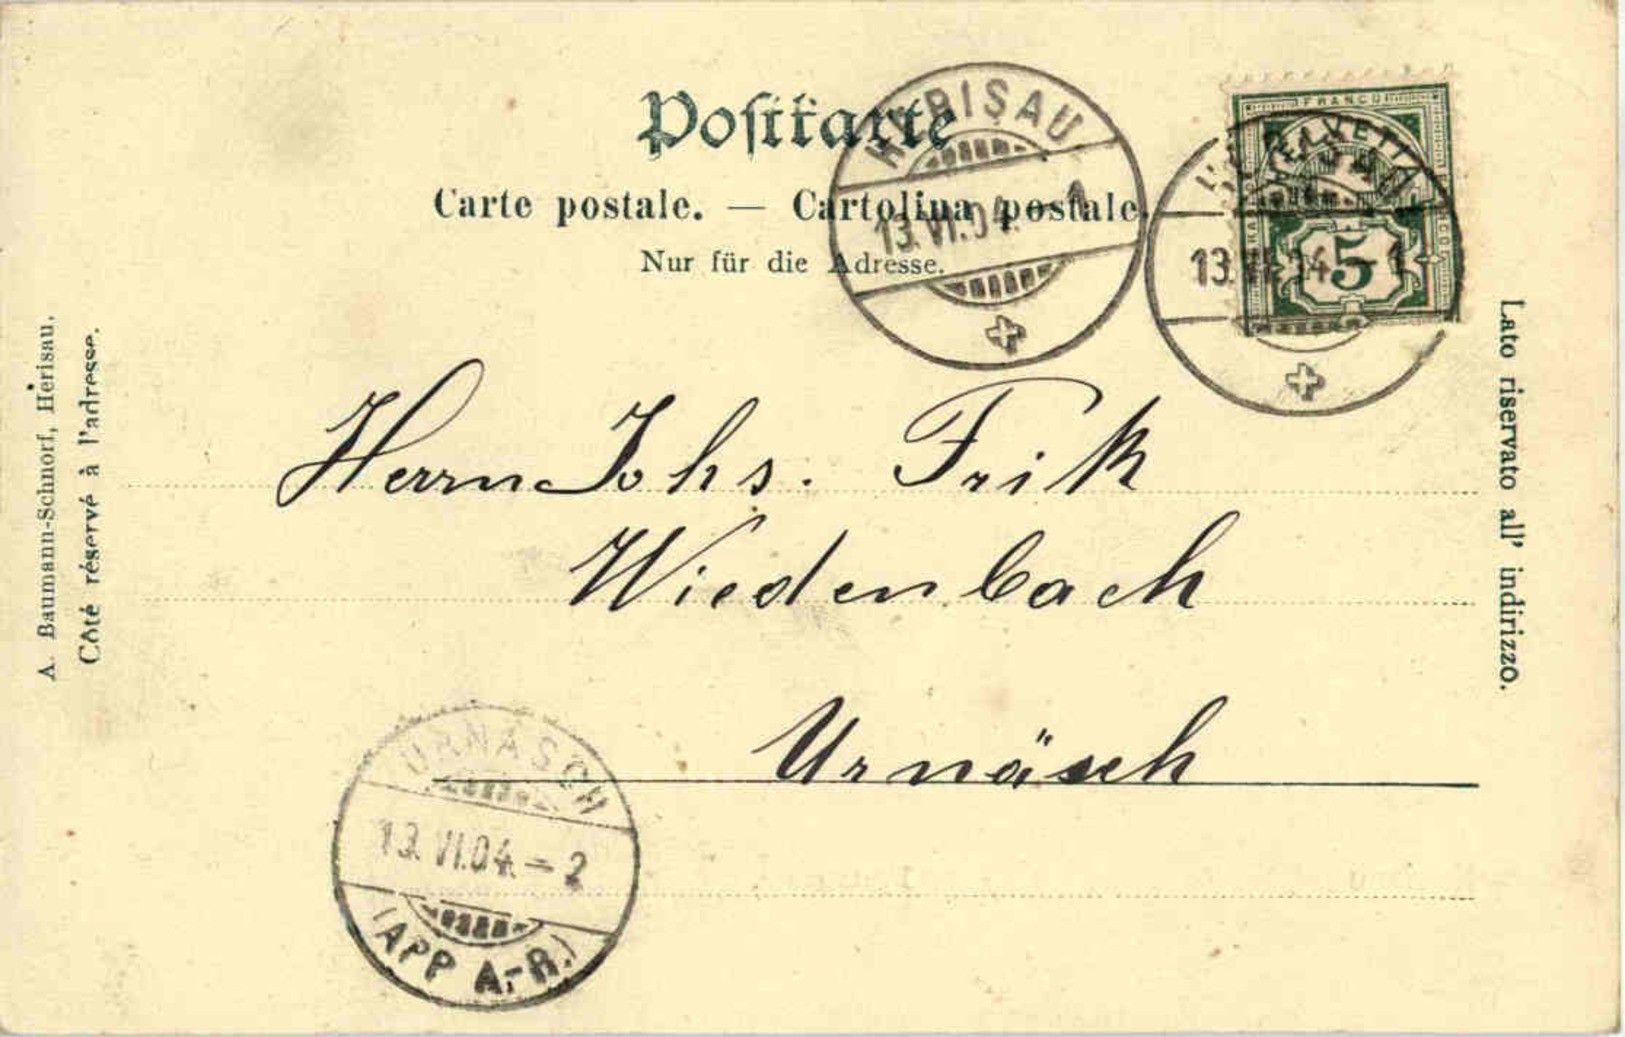 Postkarte
Carte postale. — Cartolina postale.
Nur für die Adresse.
HERISAU
13.VI.04.-1
FRANCO
HELVETIA
5
13.VI.04.-1
A. Baumann-Schnorf, Herisau.
Côté réservé à l'adresse.
Lato riservato all' indirizzo.
Herrn Johs. Frik
Wiedenbach
Urnäsch
URNÄSCH
13.VI.04.-2
(APP. A.-R.)